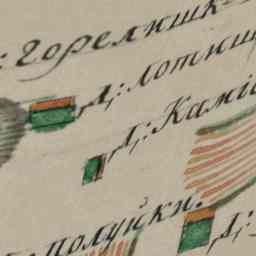 : Горелишк
Д: Лотиш
Д: Камі
полуйки.
Д: